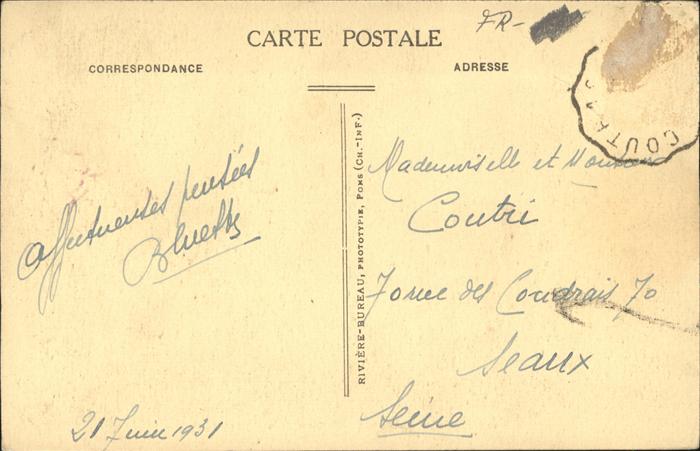 FR-
CARTE POSTALE
CORRESPONDANCE
ADRESSE
COUTRA
Affectueuses pensées
Bluette
21 Juin 1931
RIVIÈRE-BUREAU, PHOTOTYPIE, PONS (CH.-INF.)
Mademoiselle et Monsieur
Coutri
70 rue des Coudrais 70
Seaux
Seine